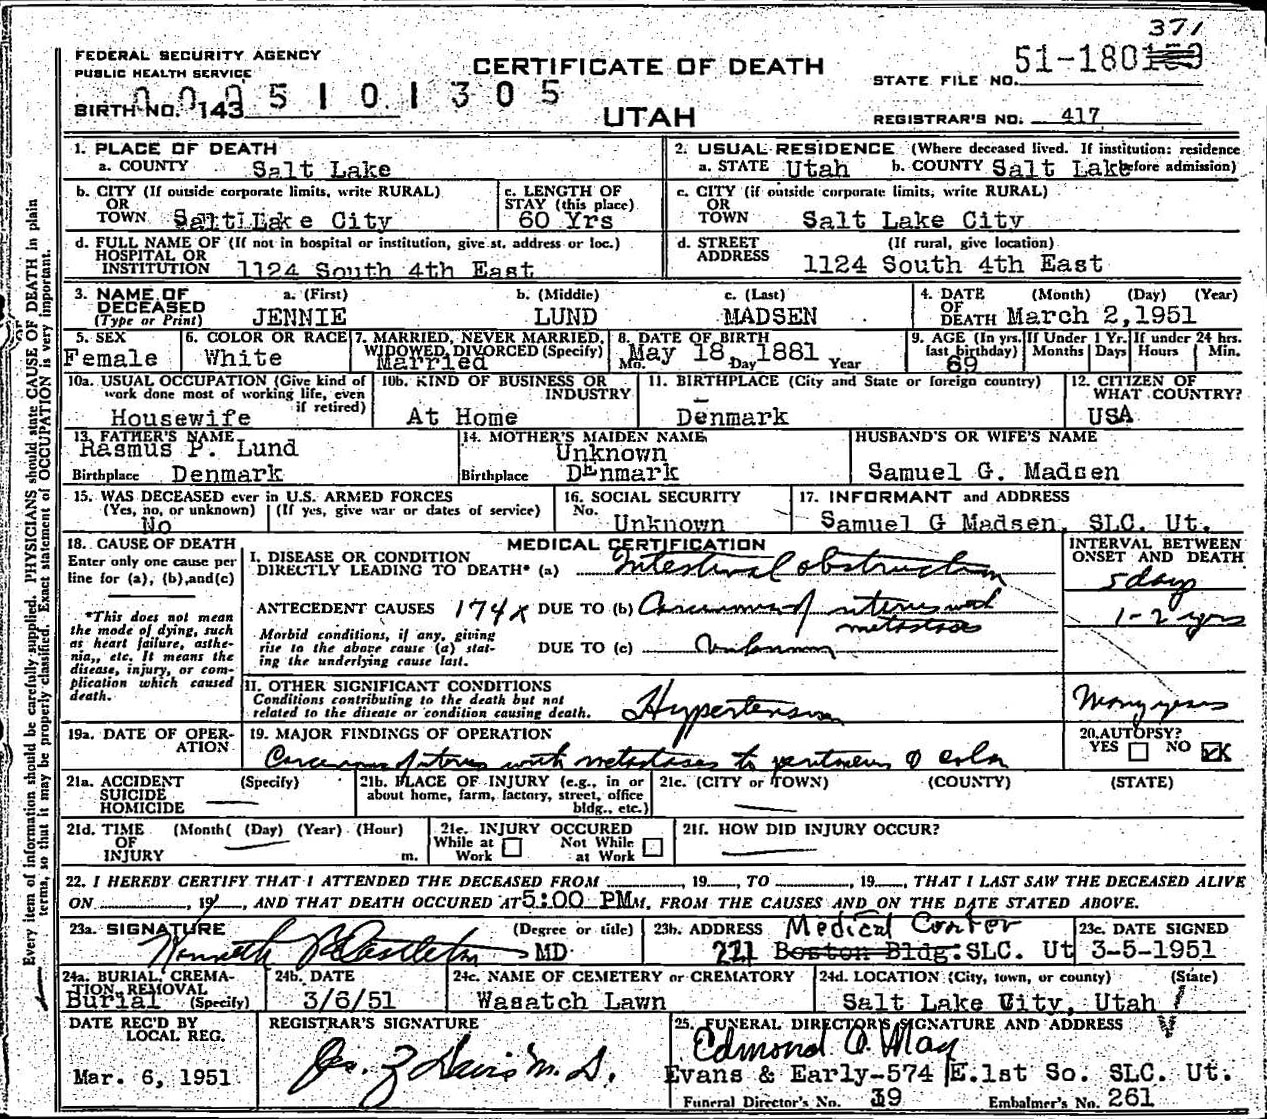 371
FEDERAL SECURITY AGENCY
PUBLIC HEALTH SERVICE
CERTIFICATE OF DEATH
STATE FILE NO. 51-180
BIRTH NO. 143
0005101305
UTAH
REGISTRAR'S NO. 417
Every item of information should be carefully supplied. PHYSICIANS should state CAUSE OF DEATH in plain
terms, so that it may be properly classified. Exact statement of OCCUPATION is very important.
1. PLACE OF DEATH
a. COUNTY Salt Lake
2. USUAL RESIDENCE (Where deceased lived. If institution: residence
a. STATE Utah b. COUNTY Salt Lake before admission)
b. CITY (If outside corporate limits, write RURAL)
OR
TOWN Salt Lake City
c. LENGTH OF
STAY (this place)
60 Yrs
c. CITY (if outside corporate limits, write RURAL)
OR
TOWN Salt Lake City
d. FULL NAME OF (If not in hospital or institution, give st. address or loc.)
HOSPITAL OR
INSTITUTION 1124 South 4th East
d. STREET (If rural, give location)
ADDRESS 1124 South 4th East
3. NAME OF DECEASED (Type or Print)
a. (First) b. (Middle) c. (Last)
JENNIE LUND MADSEN
4. DATE (Month) (Day) (Year)
OF
DEATH March 2,1951
5. SEX
Female
6. COLOR OR RACE
White
7. MARRIED, NEVER MARRIED,
WIDOWED, DIVORCED (Specify)
Married
8. DATE OF BIRTH
May 18 1881
Mo. Day Year
9. AGE (In yrs. last birthday) If Under 1 Yr. If under 24 hrs.
69 Months Days Hours Min.
10a. USUAL OCCUPATION (Give kind of
work done most of working life, even
if retired)
Housewife
10b. KIND OF BUSINESS OR
INDUSTRY
At Home
11. BIRTHPLACE (City and State or foreign country)
Denmark
12. CITIZEN OF
WHAT COUNTRY?
USA
13. FATHER'S NAME
Rasmus P. Lund
Birthplace Denmark
14. MOTHER'S MAIDEN NAME
Unknown
Birthplace Denmark
HUSBAND'S OR WIFE'S NAME
Samuel G. Madsen
15. WAS DECEASED ever in U.S. ARMED FORCES
(Yes, no, or unknown) (If yes, give war or dates of service)
No
16. SOCIAL SECURITY
No. Unknown
17. INFORMANT and ADDRESS
Samuel G Madsen, SLC. Ut.
18. CAUSE OF DEATH
Enter only one cause per
line for (a), (b), and (c)
*This does not mean
the mode of dying, such
as heart failure, asthe-
nia,, etc. It means the
disease, injury, or com-
plication which caused
death.
MEDICAL CERTIFICATION
I. DISEASE OR CONDITION
DIRECTLY LEADING TO DEATH* (a) Intestinal obstruction
ANTECEDENT CAUSES 174x DUE TO (b) Carcinoma of uterus with
metastases
Morbid conditions, if any, giving
rise to the above cause (a) stat-
ing the underlying cause last.
DUE TO (c) Unknown
INTERVAL BETWEEN
ONSET AND DEATH
5 days
1-2 yrs
II. OTHER SIGNIFICANT CONDITIONS
Conditions contributing to the death but not
related to the disease or condition causing death.
Hypertension
Many years
19a. DATE OF OPER-
ATION
19. MAJOR FINDINGS OF OPERATION
Carcinoma of uterus with metastases to peritoneum & colon
20. AUTOPSY?
YES NO X
21a. ACCIDENT (Specify)
SUICIDE
HOMICIDE
21b. PLACE OF INJURY (e.g., in or
about home, farm, factory, street, office
bldg., etc.)
21c. (CITY or TOWN) (COUNTY) (STATE)
21d. TIME (Month( (Day) (Year) (Hour)
OF
INJURY m.
21e. INJURY OCCURED
While at Work Not While at Work
21f. HOW DID INJURY OCCUR?
22. I HEREBY CERTIFY THAT I ATTENDED THE DECEASED FROM , 19 , TO , 19 , THAT I LAST SAW THE DECEASED ALIVE
ON , 19 , AND THAT DEATH OCCURED AT 5:00 PM m, FROM THE CAUSES AND ON THE DATE STATED ABOVE.
23a. SIGNATURE (Degree or title)
Kenneth B Castleton MD
23b. ADDRESS Medical Center
221 Boston Bldg: SLC. Ut
23c. DATE SIGNED
3-5-1951
24a. BURIAL, CREMA-
TION, REMOVAL
Burial (Specify)
24b. DATE
3/6/51
24c. NAME OF CEMETERY or CREMATORY
Wasatch Lawn
24d. LOCATION (City, town, or county) (State)
Salt Lake City, Utah
DATE REC'D BY
LOCAL REG.
Mar. 6, 1951
REGISTRAR'S SIGNATURE
Jas. Z Davis M.D.
25. FUNERAL DIRECTOR'S SIGNATURE AND ADDRESS
Edmond O. May
Evans & Early-574 E.1st So. SLC. Ut.
Funeral Director's No. 39 Embalmer's No. 261